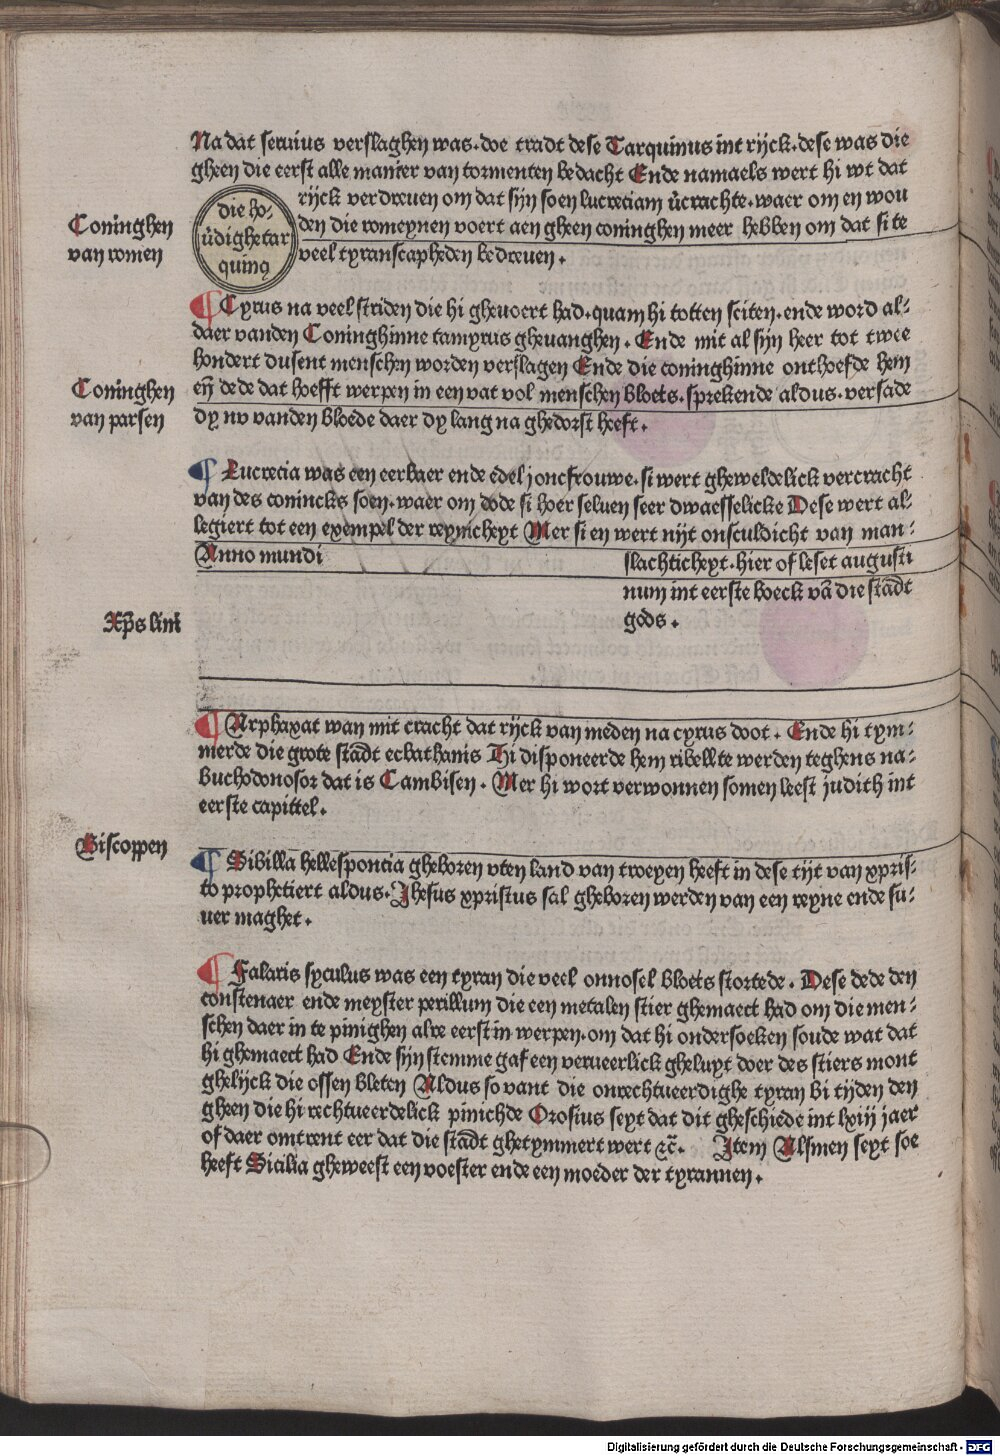 Na dat seruius verslaghen was. doe tradt dese Tarquinus int rijck. dese was die
gheen die eerst alle manier van tormenten bedacht Ende namaels wert hi wt dat
rijck verdreuen om dat sijn soen lucreciam v̄crachte. waer om en wou
die ho-
v̄dighe tar
quinꝯ
Coninghen
van romen
den die romeynen voert aen gheen coninghen meer hebben om dat si te
veel tyranscapheden bedreuen.
¶ Cyrus na veel striden die hi gheuoert had. quam hi totten sciten. ende word al-
daer vanden Coninghinne tamyrus gheuanghen. Ende mit al sijn heer tot twee
hondert dusent menschen worden verslagen Ende die coninghinne onthoefde hem
Coninghen
van parsen
eñ dede dat hoefft werpen in een vat vol menschen bloets. sprekende aldus. versade
dy nv vanden bloede daer dy lang na ghedorst heeft.
¶ Lucrecia was een eerbaer ende edel joncfrouwe. si wert gheweldelick vercracht
van des conincks soen. waer om dode si hoer seluen seer dwaesselicke Dese wert al-
legiert tot een exempel der reynicheyt Mer si en wert nijt onsculdicht van man-
Anno mundi
slachticheyt. hier of leset augusti
num int eerste boeck vā die stādt
gods.
Xp̄s lini
¶ Arphaxat wan mit cracht dat rijck van meden na cyrus doot. Ende hi tym-
merde die grote stādt ecbathanis Hi disponeerde hem ribell te werden teghens na-
buchodonosor dat is Cambisen. Mer hi wort verwonnen so men leest judith int
eerste capittel.
Biscoppen
¶ Sibilla hellespontia gheboren vten land van troeyen heeft in dese tijt van xpris-
to prophetiert aldus. Jhesus xpristus sal gheboren werden van een reyne ende su-
uer maghet.
¶ Falaris syculus was een tyran die veel onnosel bloets stortede. Dese dede den
constenaer ende meyster perillum die een metalen stier ghemaect had om die men-
schen daer in te pinighen alre eerst in werpen. om dat hi ondersoeken soude wat dat
hi ghemaect had Ende sijn stemme gaf een verueerlick gheluyt doer des stiers mont
ghelijck die ossen bleten Aldus so vant die onrechtueerdighe tyran bi tijden den
gheen die hi rechtueerdelick pinichde Orosius seyt dat dit gheschiede int lxiij jaer
of daer omtrent eer dat die stādt ghetymmert wert ⁊c̄. Item Alsmen seyt soe
heeft Sicilia gheweest een voester ende een moeder der tyrannen.
Digitalisierung gefördert durch die Deutsche Forschungsgemeinschaft - DFG